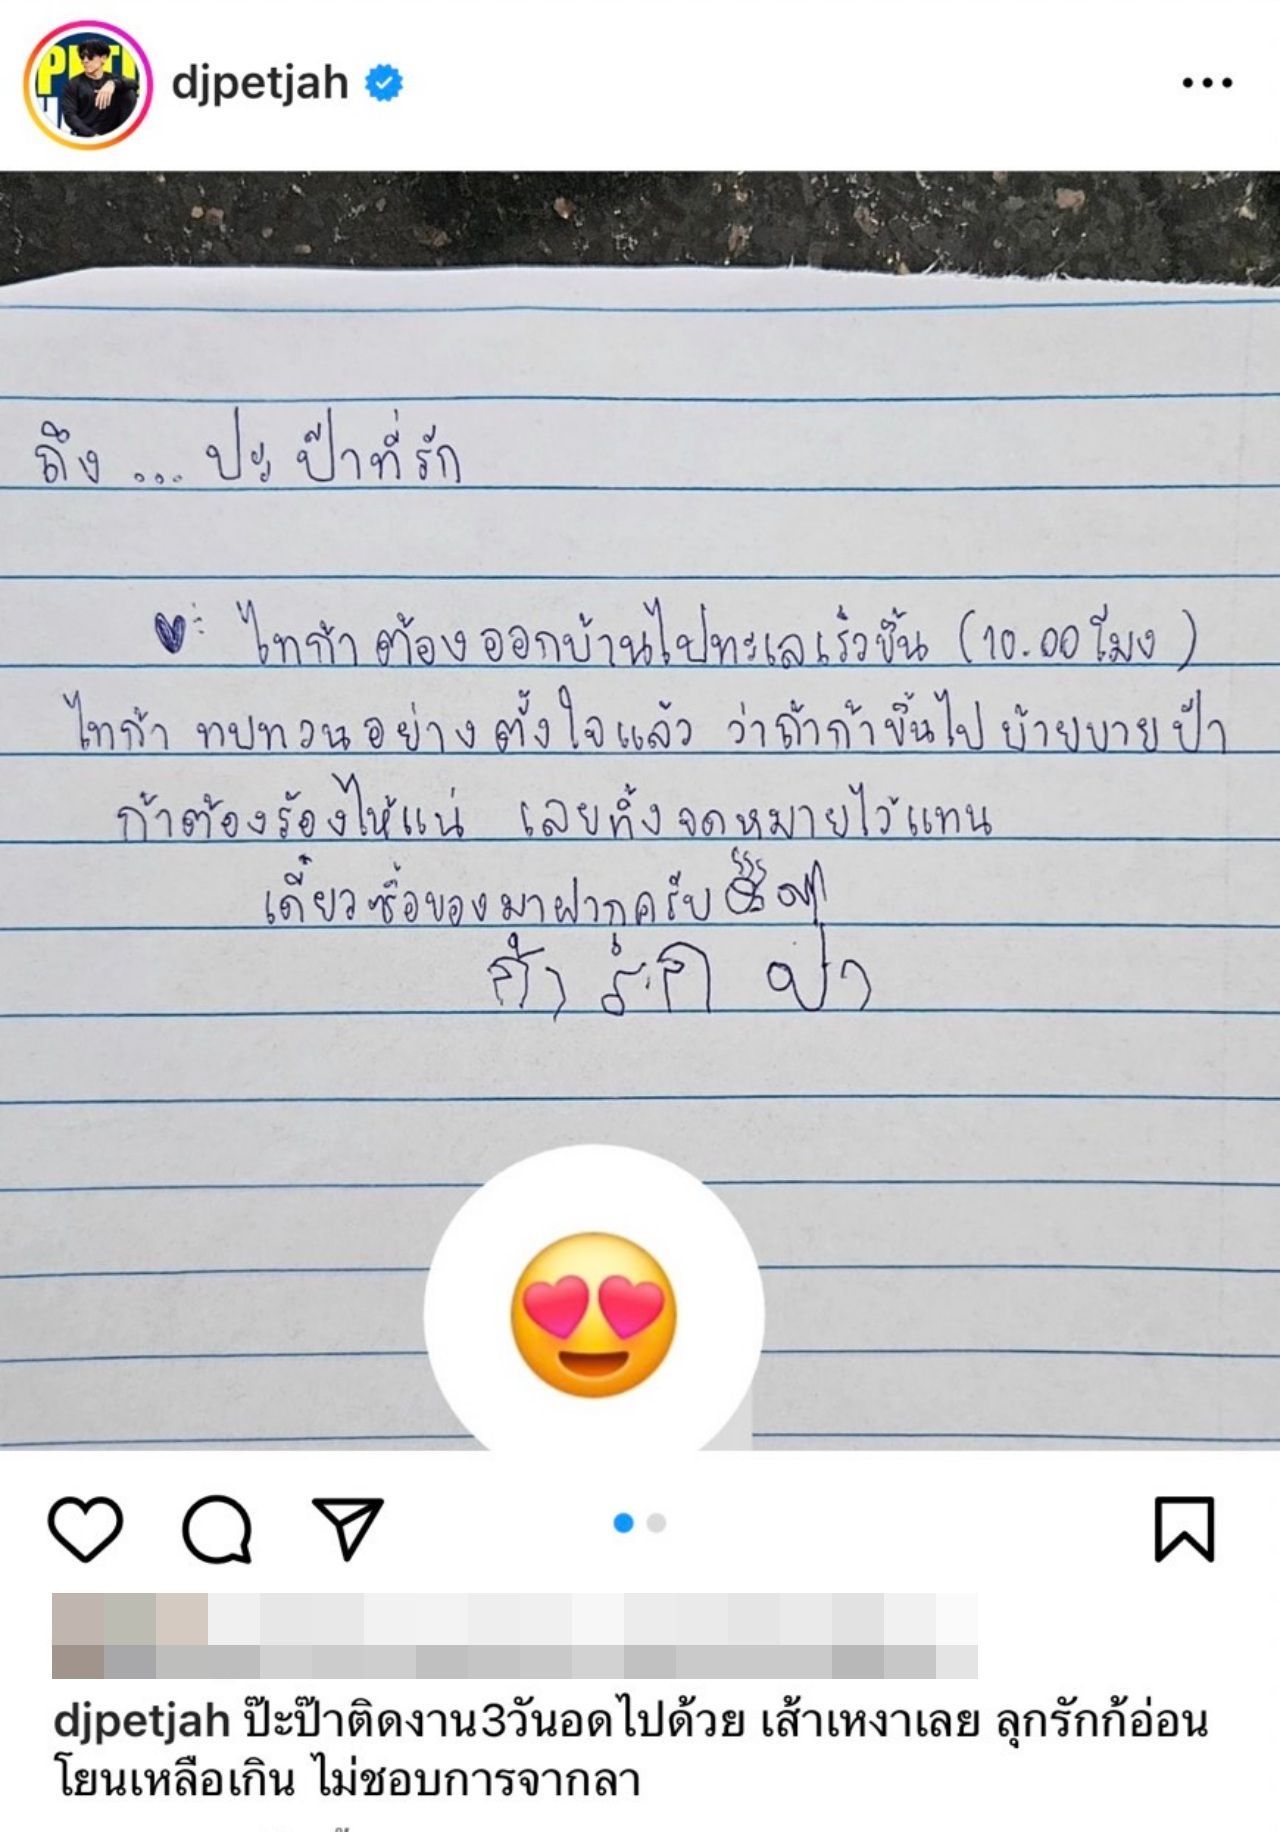 djpetjah
ถึง ... ปะป๊าที่รัก
ไทก้าต้องออกบ้านไปทะเลเร็วขึ้น (10.00โมง)
ไทก้า ทบทวนอย่างตั้งใจแล้ว ว่าถ้าก้าขึ้นไปบ๊ายบายป๊า
ก้าต้องร้องไห้แน่ เลยทิ้งจดหมายไว้แทน
เดี๋ยวซื้อของมาฝากครับ
ก้า รัก ป๊า
djpetjah ป๊ะป๊าติดงาน3วันอดไปด้วย เส้าเหงาเลย ลุกรักก้อ่อน
โยนเหลือเกิน ไม่ชอบการจากลา